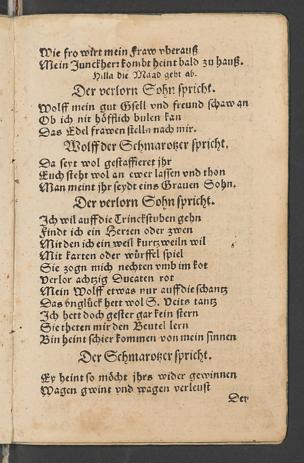 Wie fro wirt mein Fraw vberauß
Mein Junckherr kombt heint bald zu hauß.
Hilla die Maad geht ab.
Der verlorn Sohn spricht.
Wolff mein gut Gsell vnd freund schaw an
Ob ich nit höfflich bulen kan
Das Edel frawen stelln nach mir.
Wolff der Schmarotzer spricht.
Da seyt wol gestaffieret jhr
Euch steht wol an ewer lassen vnd thon
Man meint jhr seydt eins Grauen Sohn.
Der verlorn Sohn spricht.
Ich wil auff die Trinckstuben gehn
Findt ich ein Herzen oder zwen
Mit den ich ein weil kurtzweiln wil
Mit karten oder würffel spiel
Sie zogn mich nechten vmb im kot
Verlor achtzig Ducaten rot
Mein Wolff etwas nur auff die schantz
Das vnglück hett wol S. Veits tantz
Ich hett doch gester gar kein stern
Sie theten mir den Beutel lern
Bin heint schier kommen von mein sinnen
Der Schmarotzer spricht.
Ey heint so möcht jhrs wider gewinnen
Wagen gwint vnd wagen verleust
Der